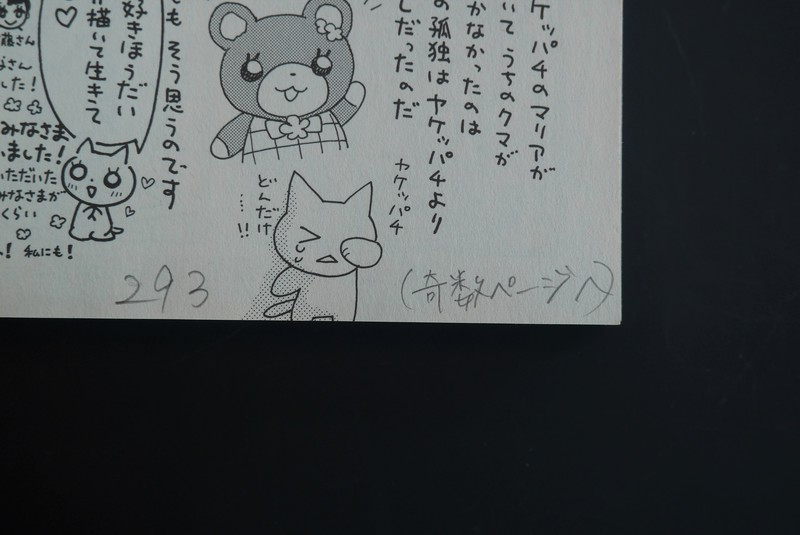 ケッパチのマリアが
いて うちのクマが
かなかったのは
の孤独はヤケッパチより
しだったのだ
ヤケッパチ
どんだけ
…!!
も そう思うのです
好きほうだい
描いて生きて
♡
さん
さん
した!
みなさま
いました!
いただいた
みなさまが
くらい
! 私にも!
293
(奇数ページへ)